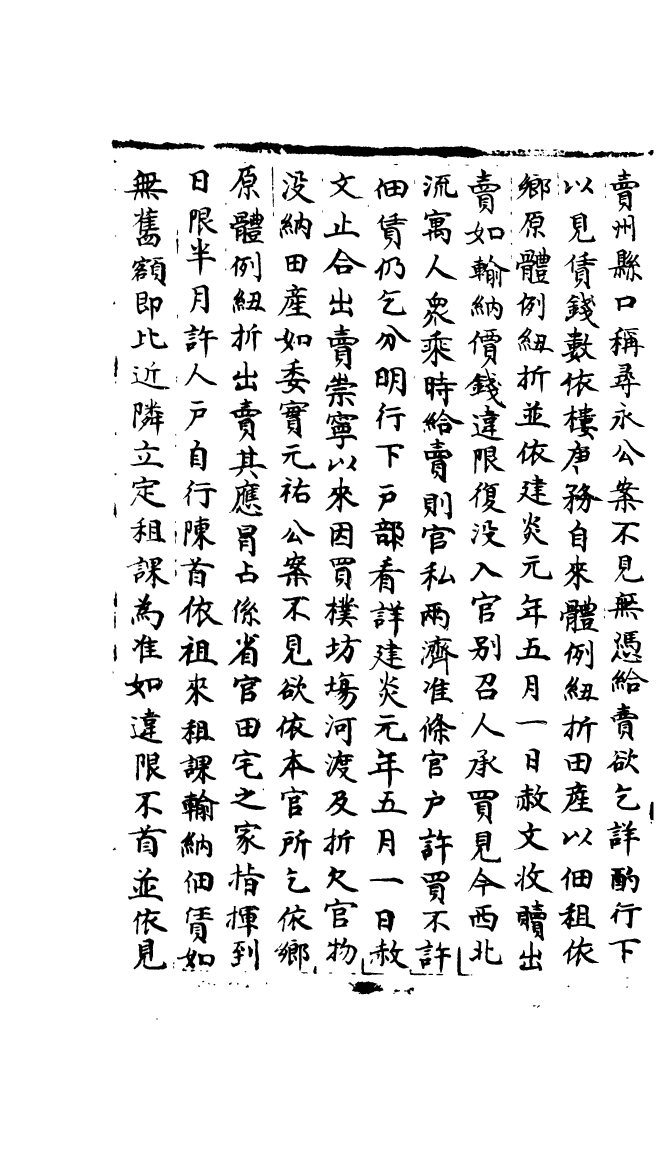 賣州縣口稱尋永公案不見無憑給賣欲乞詳酌行下
以見賃錢數依樓店務自來體例紐折田産以佃租依
鄉原體例紐折並依建炎元年五月一日赦文收贖出
賣如輸納價錢違限復没入官别召人承買見今西北
流寓人衆乘時給賣則官私兩濟准條官户許買不許
佃賃仍乞分明行下户部看詳建炎元年五月一日赦
文止合出賣崇寧以來因買樸坊塲河渡及折欠官物
没納田産如委實元祐公案不見欲依本官所乞依鄉
原體例紐折出賣其應冐占係省官田宅之家指揮到
日限半月許人户自行陳首依祖來租課輸納佃賃如
無舊額即比近隣立定租課為准如違限不首並依見